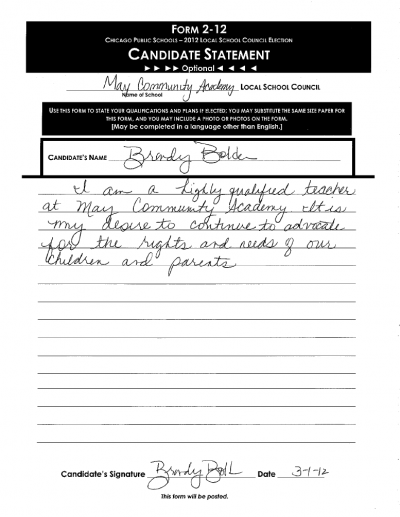 FORM 2-12
CHICAGO PUBLIC SCHOOLS – 2012 LOCAL SCHOOL COUNCIL ELECTION
CANDIDATE STATEMENT
► ► ► ► Optional ◄ ◄ ◄ ◄
May Community Academy LOCAL SCHOOL COUNCIL
Name of School
USE THIS FORM TO STATE YOUR QUALIFICATIONS AND PLANS IF ELECTED; YOU MAY SUBSTITUTE THE SAME SIZE PAPER FOR
THIS FORM, AND YOU MAY INCLUDE A PHOTO OR PHOTOS ON THE FORM.
[May be completed in a language other than English.]
CANDIDATE'S NAME Brendy Bolden
I am a highly qualified teacher
at May Community Academy It is
my desire to continue to advocate
for the rights and needs of our
children and parents
Candidate's Signature Brendy Date 3-1-12
This form will be posted.